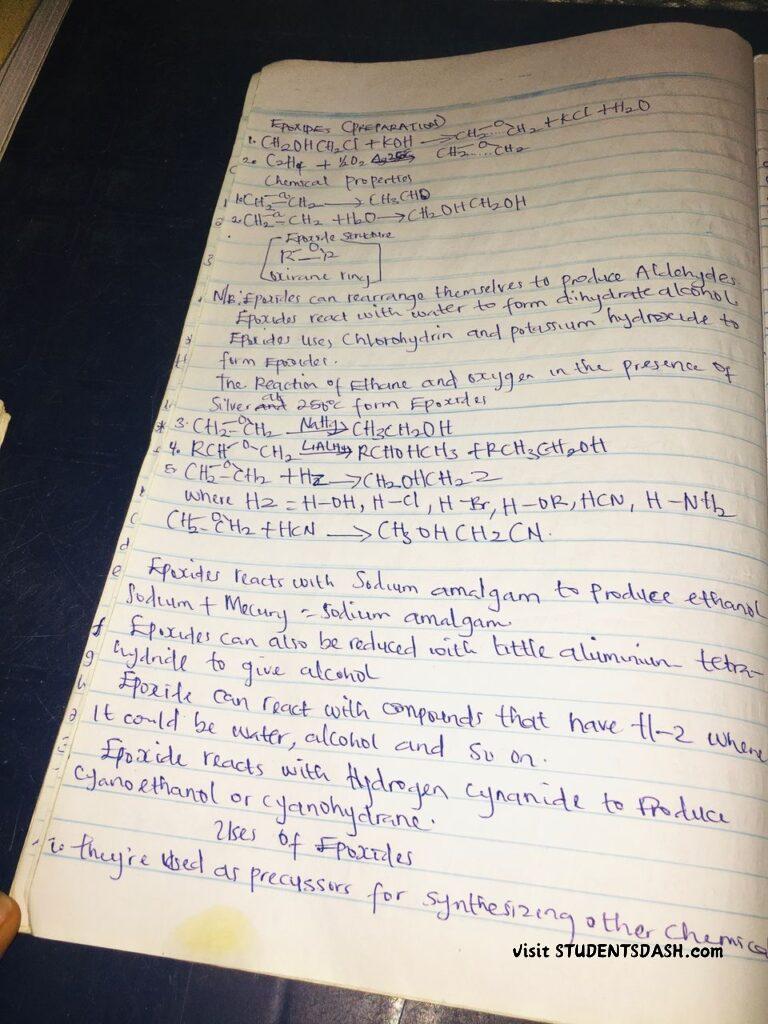 EPOXIDES (PREPARATION)
1. CH2OHCH2Cl + KOH → CH2-O-CH2 + KCl + H2O
2. C2H4 + ½O2 → CH2-O-CH2
Chemical Properties
1. CH2-O-CH2 → CH3CHO
2. CH2-O-CH2 + H2O → CH2OHCH2OH
Epoxide structure
R-O-R
Oxirane ring
N/B: Epoxides can rearrange themselves to produce Aldehydes
Epoxides react with water to form dihydrate alcohol
Epoxides uses Chlorohydrin and potassium hydroxide to
form Epoxides.
The Reaction of Ethane and oxygen in the presence of
Silver at 250°c form Epoxides
* 3. CH2-O-CH2 → CH3CH2OH
4. RCH-O-CH2 LiAlH4→ RCHOHCH3 + RCH3CH2OH
5. CH2-O-CH2 + HZ → CH2OHCH2Z
Where HZ = H-OH, H-Cl, H-Br, H-OR, HCN, H-NH2
CH2-O-CH2 + HCN → CH3OHCH2CN.
Epoxides reacts with Sodium amalgam to produce ethanol
Sodium + Mecury = Sodium amalgam
Epoxides can also be reduced with little aluminium tetra-
hydride to give alcohol
Epoxide can react with compounds that have H-Z where
It could be water, alcohol and so on.
Epoxide reacts with Hydrogen cynanide to produce
cyanoethanol or cyanohydrane.
Uses of Epoxides
they're used as precussors for synthesizing other chemica
visit STUDENTSDASH.com